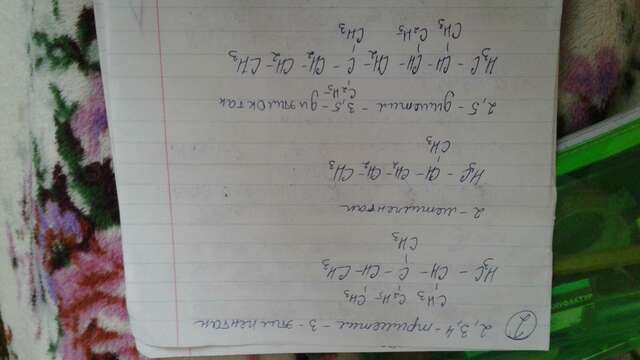 2 2,3,4 - триметил - 3 - этилпентан
CH3 C2H5 CH3
H3C - CH - C - CH - CH3
CH3
2 - метилпентан
H3C - CH - CH2 - CH2 - CH3
CH3
2,5 - диметил - 3,5 - диэтилоктан
C2H5
H3C - CH - CH - CH2 - C - CH2 - CH2 - CH3
CH3 C2H5 CH3